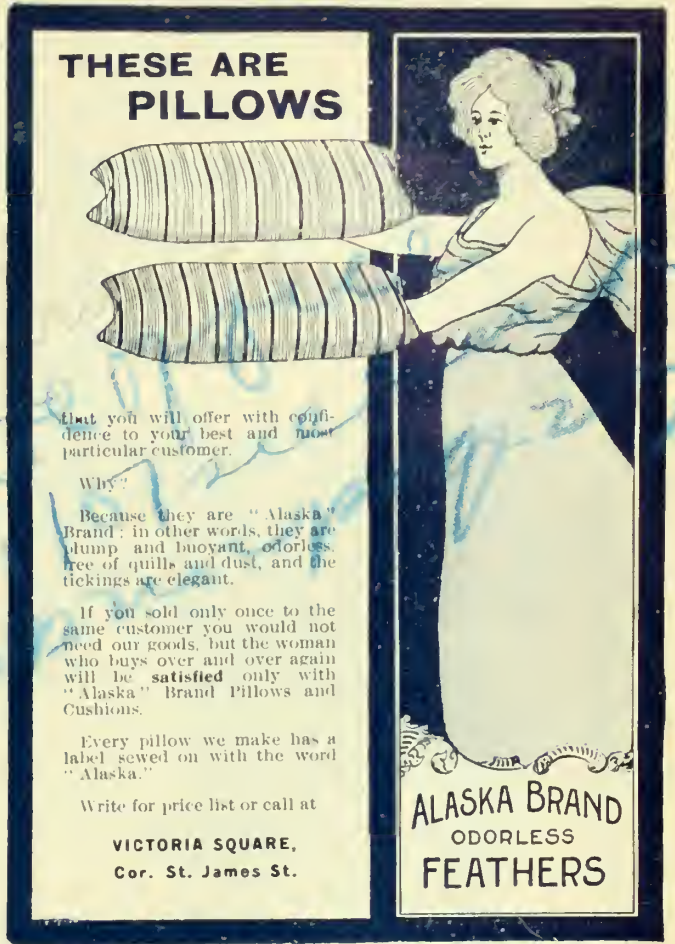 THESE ARE
PILLOWS
that you will offer with confi-
dence to your best and most
particular customer.
Why?
Because they are "Alaska"
Brand; in other words, they are
plump and buoyant, odorless,
free of quills and dust, and the
tickings are elegant.
If you sold only once to the
same customer you would not
need our goods, but the woman
who buys over and over again
will be satisfied only with
"Alaska" Brand Pillows and
Cushions.
Every pillow we make has a
label sewed on with the word
"Alaska."
Write for price list or call at
VICTORIA SQUARE,
Cor. St. James St.
ALASKA BRAND
ODORLESS
FEATHERS